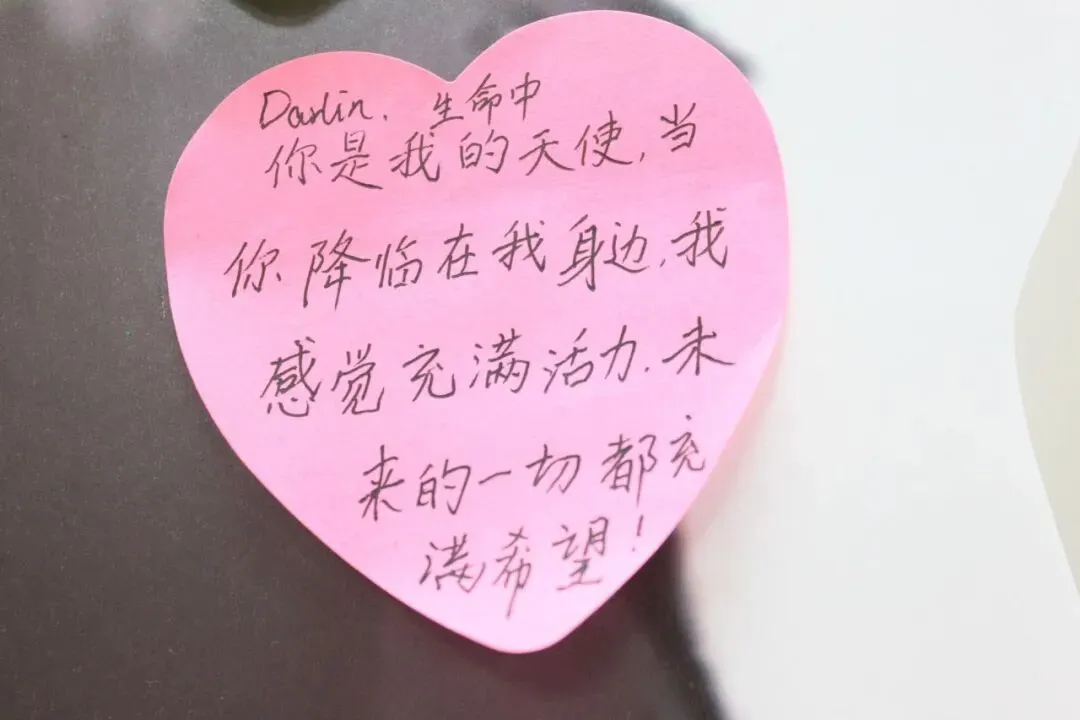 Darlin. 生命中
你是我的天使,当
你降临在我身边,我
感觉充满活力.未
来的一切都充
满希望!